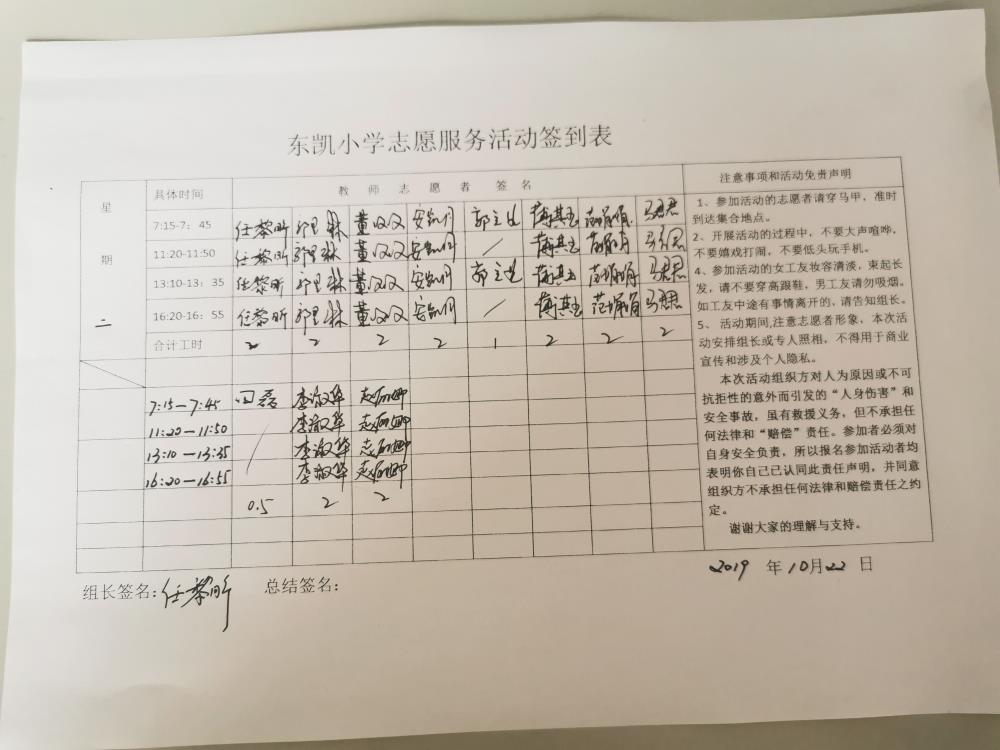 东凯小学志愿服务活动签到表
星期二
具体时间 教师志愿者签名
7:15-7：45 任黎昕 董汉汉 安凯月 郭立也 薄其玉 范娟娟 马思思
11:20-11:50 任黎昕 董汉汉 安凯月 / 薄其玉 范娟娟 马思思
13:10-13：35 任黎昕 董汉汉 安凯月 郭立也 薄其玉 范娟娟 马思思
16:20-16：55 任黎昕 董汉汉 安凯月 / 薄其玉 范娟娟 马思思
合计工时 2 2 2 2 1 2 2 2
7:15—7:45 李淑华
11:20—11:50 李淑华
13:10—13:35 李淑华
16:20—16:55 李淑华
0.5 2 2
注意事项和活动免责声明
1、参加活动的志愿者请穿马甲，准时
到达集合地点。
2、开展活动的过程中，不要大声喧哗，
不要嬉戏打闹，不要低头玩手机。
4、参加活动的女工友妆容清淡，束起长
发，请不要穿高跟鞋，男工友请勿吸烟。
如工友中途有事情离开的，请告知组长。
5、活动期间,注意志愿者形象，本次活
动安排组长或专人照相，不得用于商业
宣传和涉及个人隐私。
本次活动组织方对人为原因或不可
抗拒性的意外而引发的“人身伤害”和
安全事故，虽有救援义务，但不承担任
何法律和“赔偿”责任。参加者必须对
自身安全负责，所以报名参加活动者均
表明你自己已认同此责任声明，并同意
组织方不承担任何法律和赔偿责任之约
定。
谢谢大家的理解与支持。
2019 年 10月22 日
组长签名：任黎昕 总结签名：